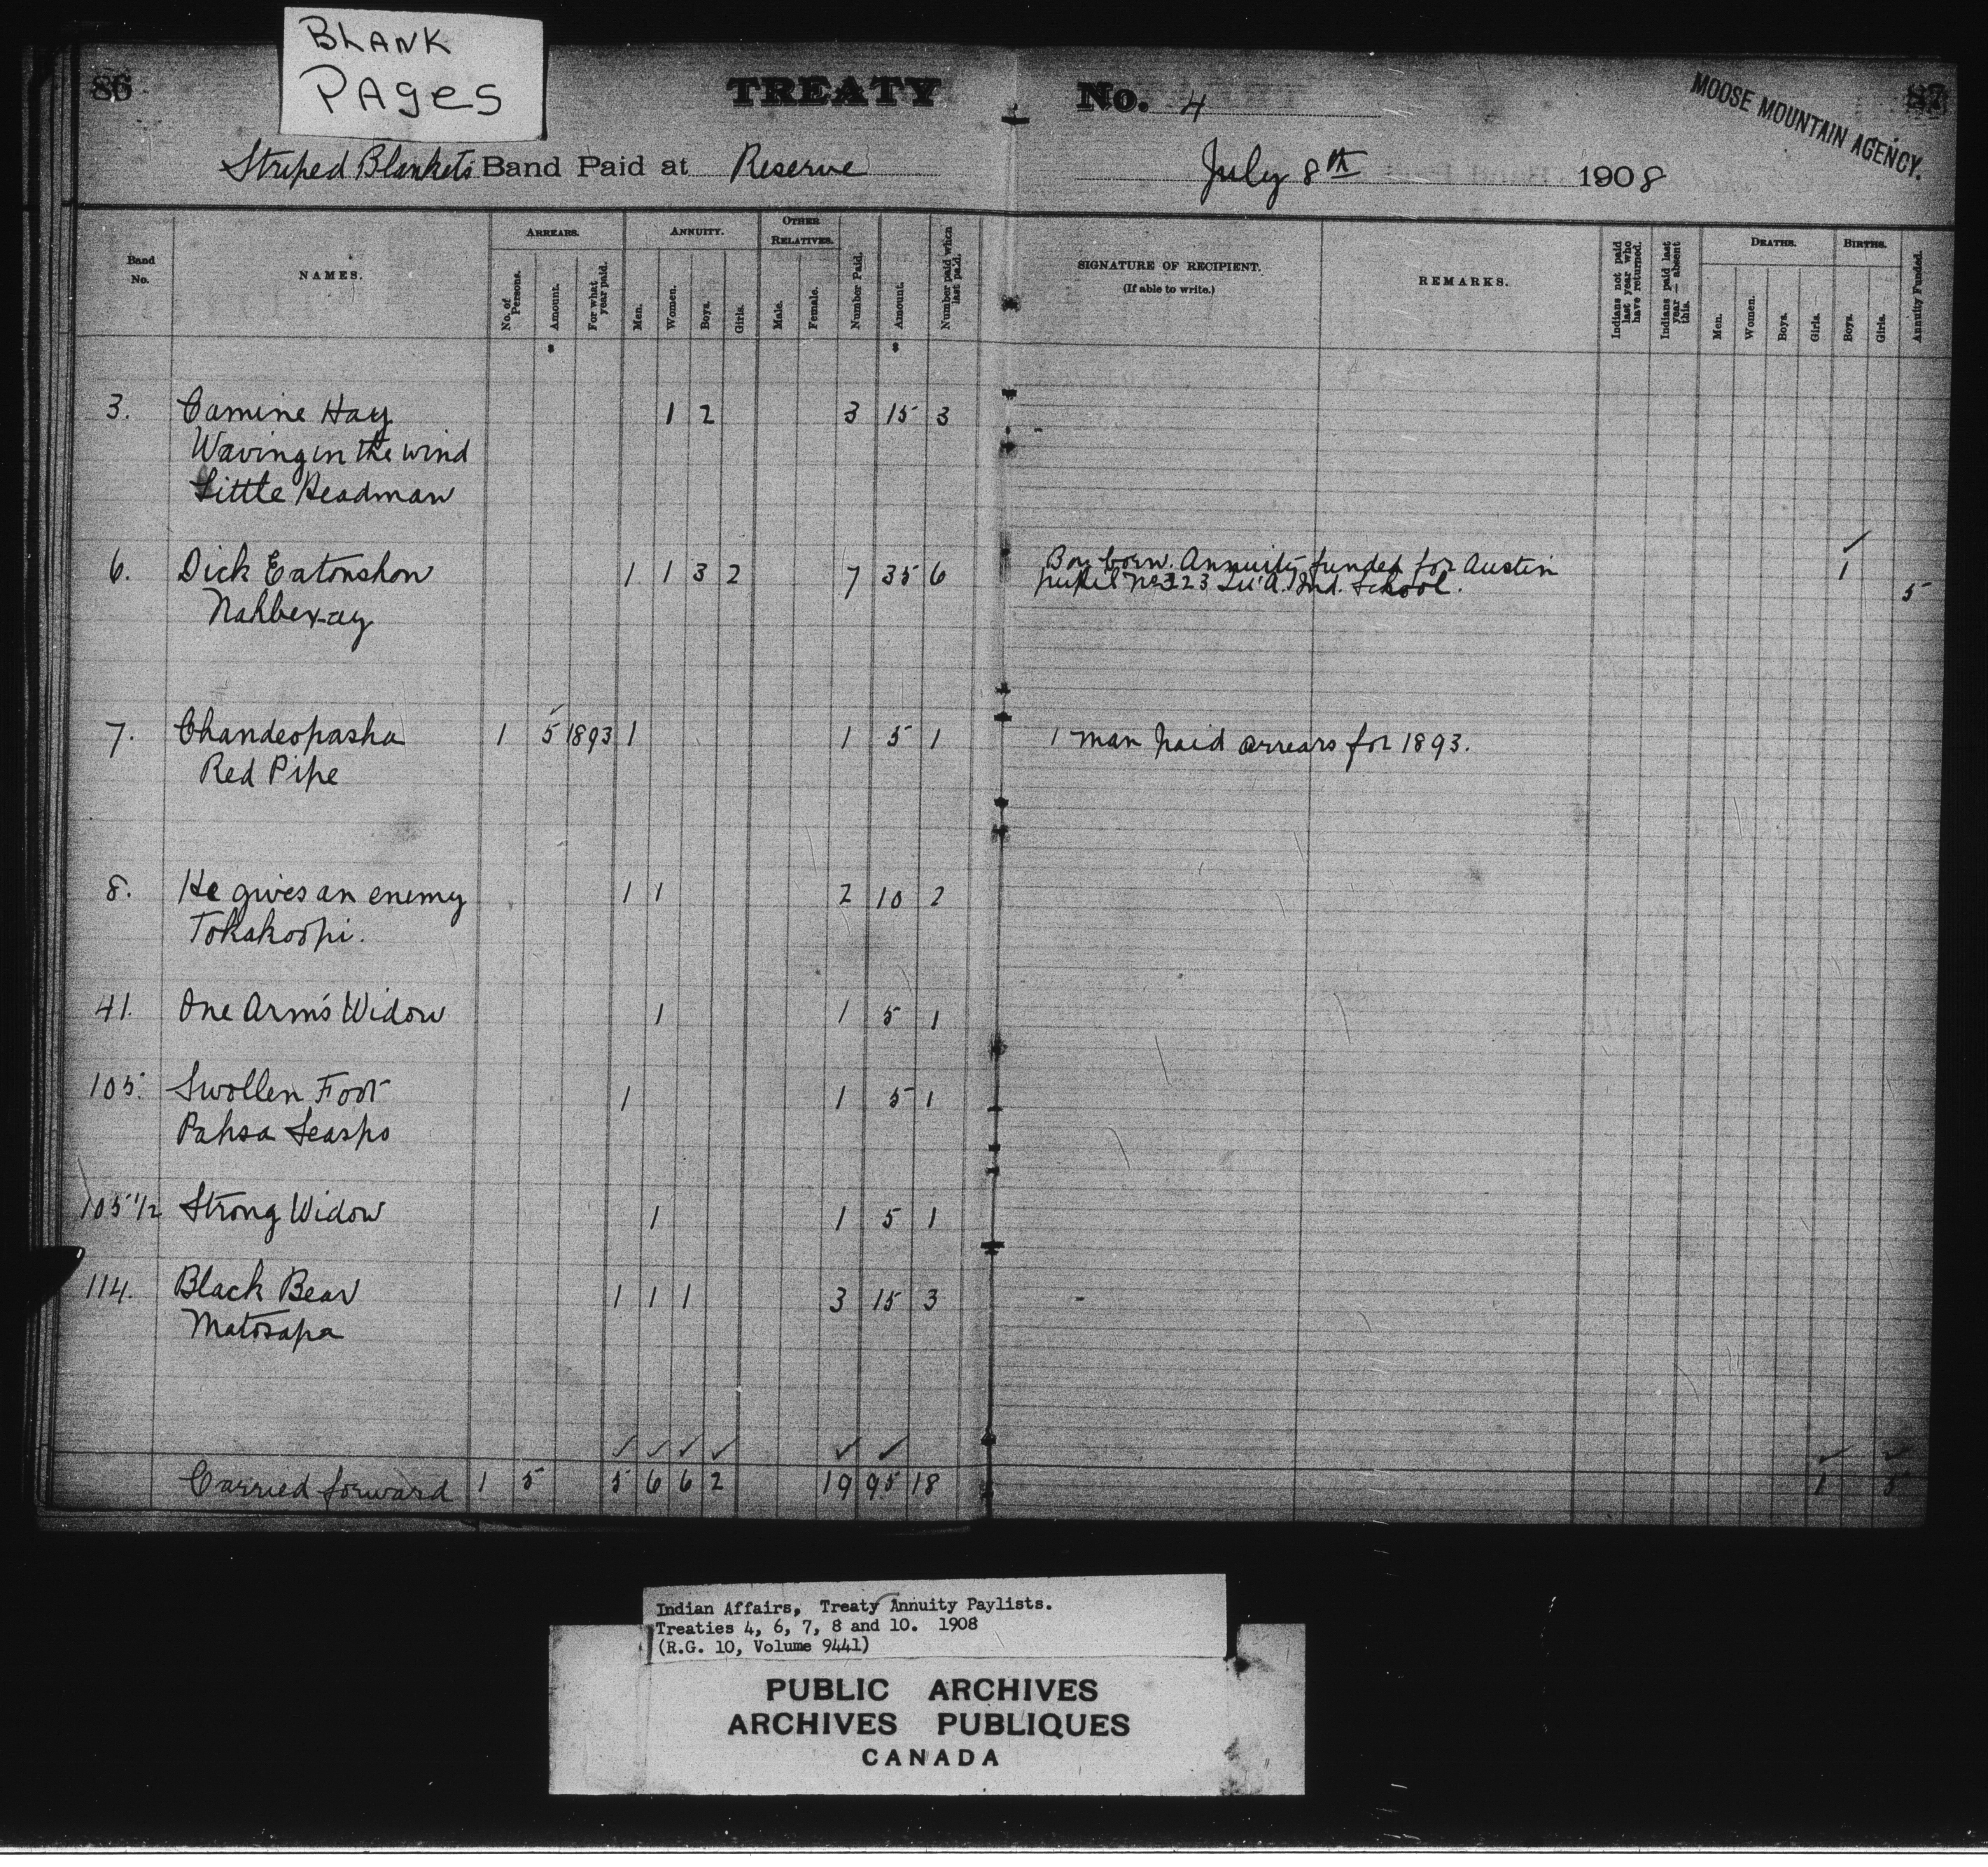 BLANK
PAges
86
TREATY No. 4
MOOSE MOUNTAIN AGENCY.
87
Striped Blankets Band Paid at Reserve July 8th 1908
Band No. NAMES. ARREARS. No. of Persons. Amount. For what year paid. ANNUITY. Men. Women. Boys. Girls. OTHER RELATIVES. Male. Female. Number Paid. Amount. Number paid when last paid. SIGNATURE OF RECIPIENT. (If able to write.) REMARKS. Indians not paid last year who have returned. Indians paid last year — absent this. DEATHS. Men. Women. Boys. Girls. BIRTHS. Boys. Girls. Annuity Funded.
3. Camine Hay 1 2 3 15 3
Waving in the wind
Little Headman
6. Dick Eatonshon 1 1 3 2 7 35 6 Boy born. Annuity funded for Austin 1
pupil No 323 Ind. School. 5
7. Chandeopasha 1 5 1893 1 1 5 1 1 man paid arrears for 1893.
Red Pipe
8. He gives an enemy 1 1 2 10 2
Tokakoopi.
41. One Arm's Widow 1 1 5 1
105. Swollen Foot 1 1 5 1
Pahsa Seaspo
105 1/2 Strong Widow 1 1 5 1
114. Black Bear 1 1 1 3 15 3
Matosapa
Carried forward 1 5 5 6 6 2 19 95 18 1 5
Indian Affairs, Treaty Annuity Paylists.
Treaties 4, 6, 7, 8 and 10. 1908
(R.G. 10, Volume 9441)
PUBLIC ARCHIVES
ARCHIVES PUBLIQUES
CANADA